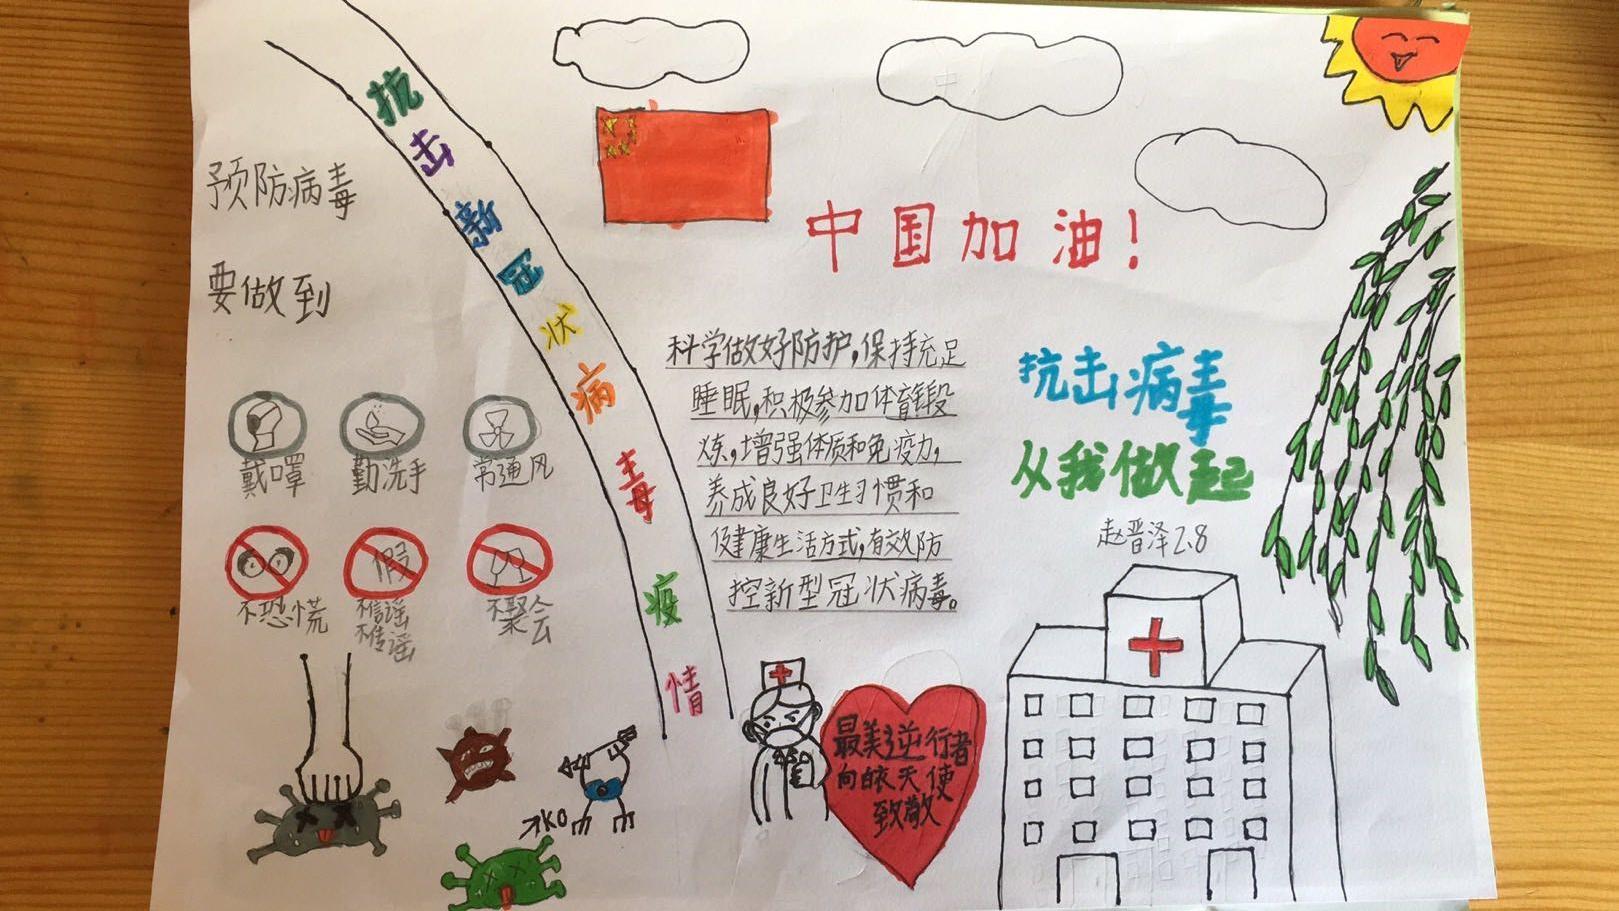 抗击新冠状病毒疫情
预防病毒
要做到
戴口罩
勤洗手
常通风
假
不恐慌
不信谣
不传谣
不聚会
KO
中国加油!
科学做好防护,保持充足
睡眠,积极参加体育锻
炼,增强体质和免疫力,
养成良好卫生习惯和
健康生活方式,有效防
控新型冠状病毒。
抗击病毒
从我做起
赵晋泽2.8
最美逆行者
向白衣天使
致敬